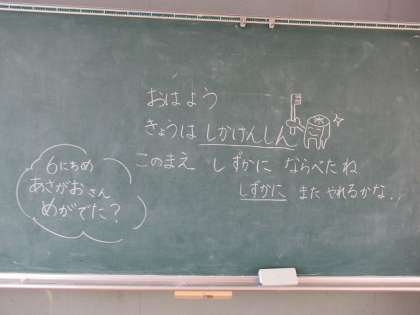 おはよう
きょうは しかけんしん
このまえ しずかに ならべたね
しずかに また やれるかな..
6にちめ
あさがおさん
めがでた？